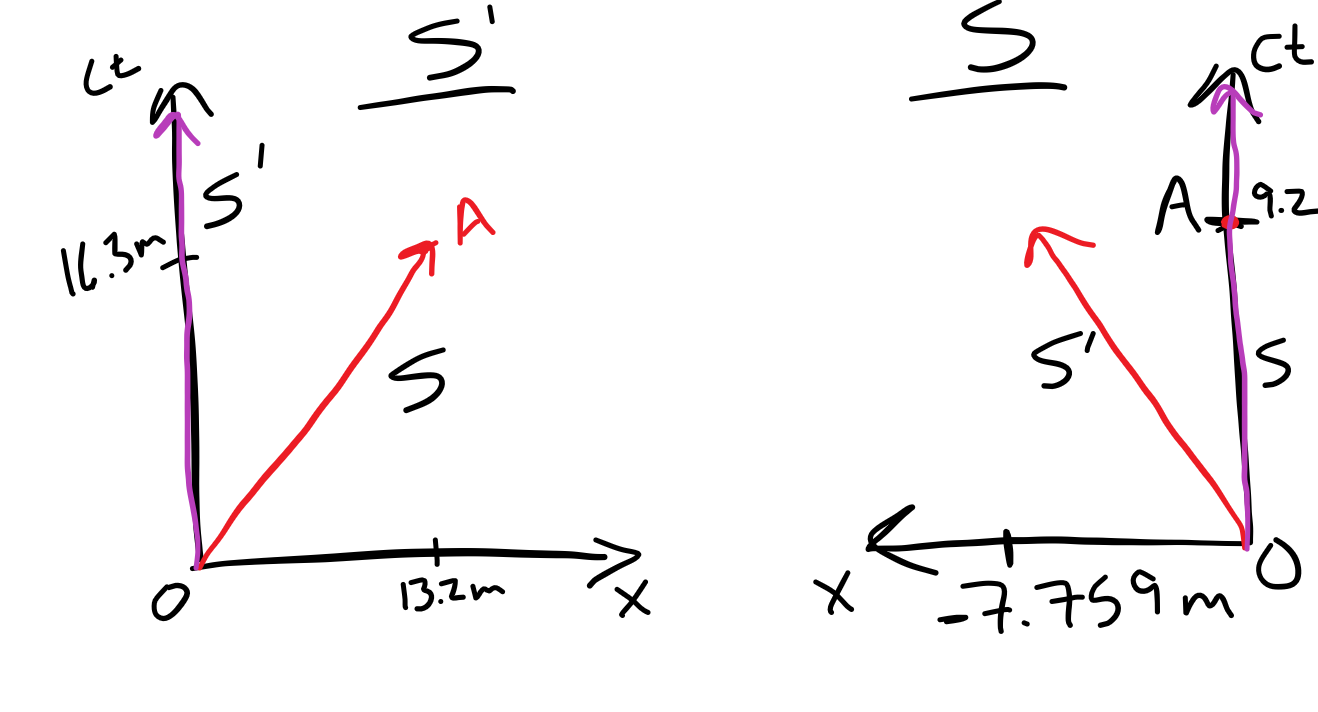 S'
ct
S'
16.3m
A
S
O
13.2m
x
S
ct
A
9.2
S'
S
x
-7.759m
O